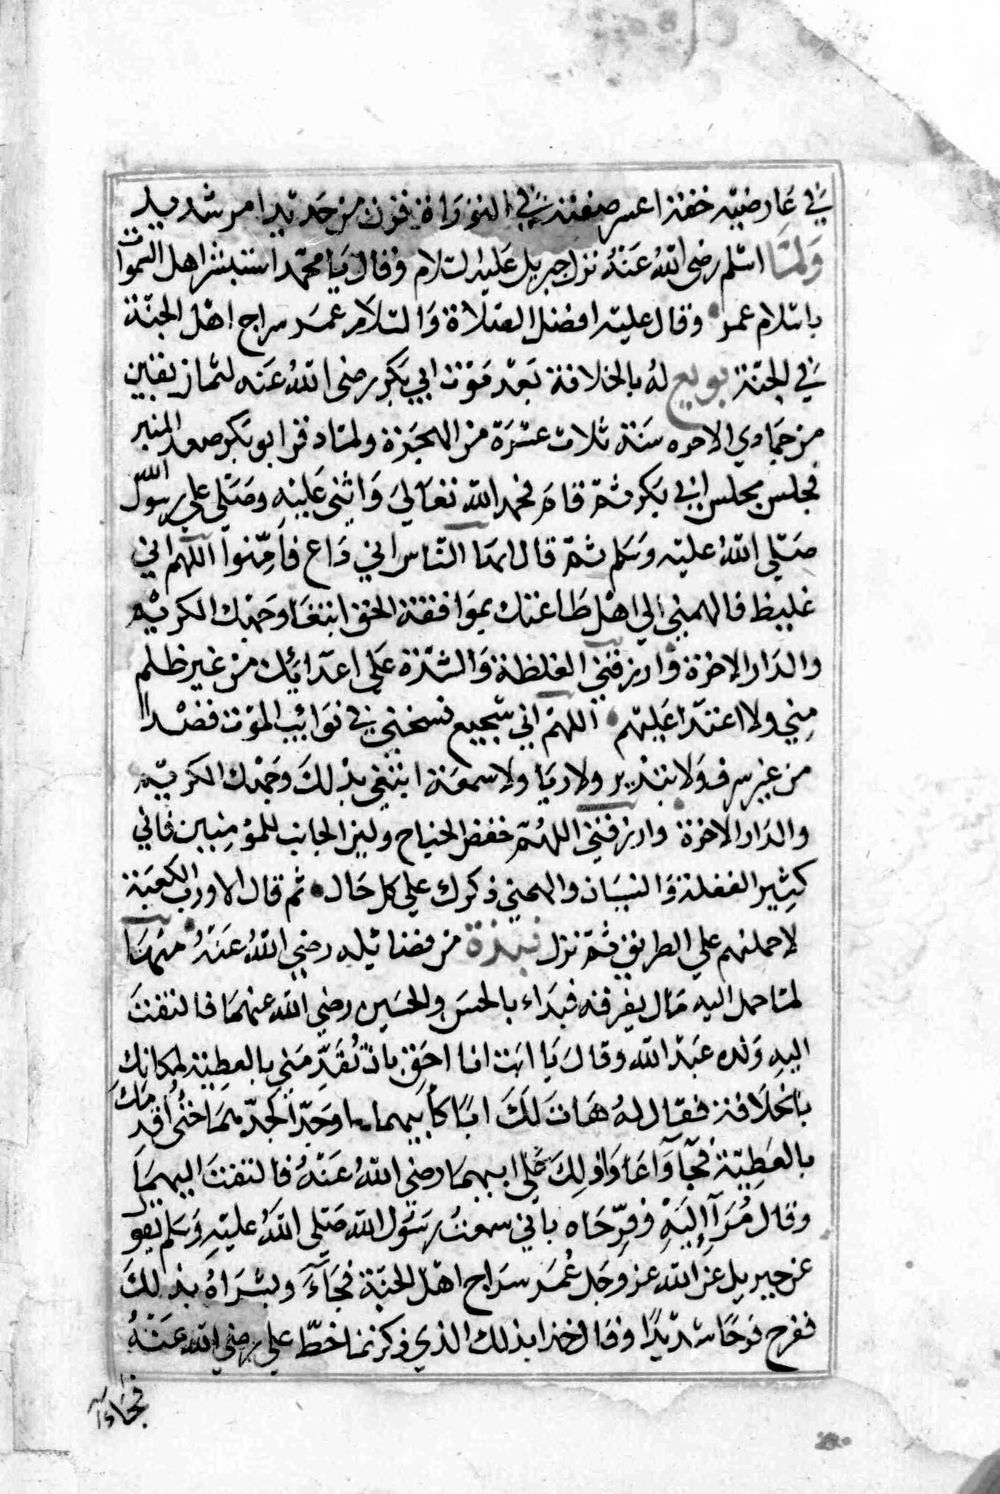 في عارضيه خفة اعسر صفته في التوراة قرن من حديد امر شديد
ولما اسلم رضى الله عنه نزل جبريل عليه السلام وقال يا محمد استبشر اهل السموات
باسلام عمر وقال عليه افضل الصلاة والسلام عمر سراج اهل الجنة
في الجنة بويع له بالخلافة بعد موت ابي بكر رضى الله عنه لثمان بقين
من جمادي الاخره سنة ثلاث عشرة من الهجرة ولما دفن ابو بكر صعد المنبر
فجلس مجلس ابي بكر ثم قام فحمد الله تعالي واثني عليه وصلي علي رسول الله
صلي الله عليه وسلم ثم قال ايها الناس اني داع فامنوا اللهم اني
غليظ فالهمني الي اهل طاعتك بموافقة الحق ابتغا وجهك الكريم
والدار الاخرة وارزقني الغلظة والشدة علي اعدائك من غير ظلم
مني ولا اعتدا عليهم اللهم اني شجيع فسخني في نوائب الموت قصدا
من غير سرف ولا تبذير ولا ريا ولا سمعة ابتغي بذلك وجهك الكريم
والدار الاخرة وارزقني اللهم خفض الجناح ولين الجانب للمؤمنين فاني
كثير الغفلة والنسيان والهمني ذكرك علي كل حال ثم قال الا ورب الكعبة
لاحملنهم علي الطريق ثم نزل نبذة من فضائله رضي الله عنه منها
لما حمل اليه مال يفرقه فبداء بالحسن والحسين رضي الله عنهما فالتفت
اليه ولده عبد الله وقال يا ابت انا احق بان تقدمني بالعطية لمكانك
بالخلافة فقال له هات لك ابا كابيهما او جدا كجدهما حتي اقدمك
بالعطية فجآآ واعاوا ذلك علي ابيهما رضي الله عنه فالتفت اليهما
وقال مرآ اليه وفرحاه باني سمعت رسول الله صلي الله عليه وسلم يقول
عن جبريل عن الله عز وجل عمر سراج اهل الجنة فجآآ وبشراه بذلك
ففرح فرحا شديدا وقال خذا بذلك الذي ذكرتما خط علي رضي الله عنه
فجاءا